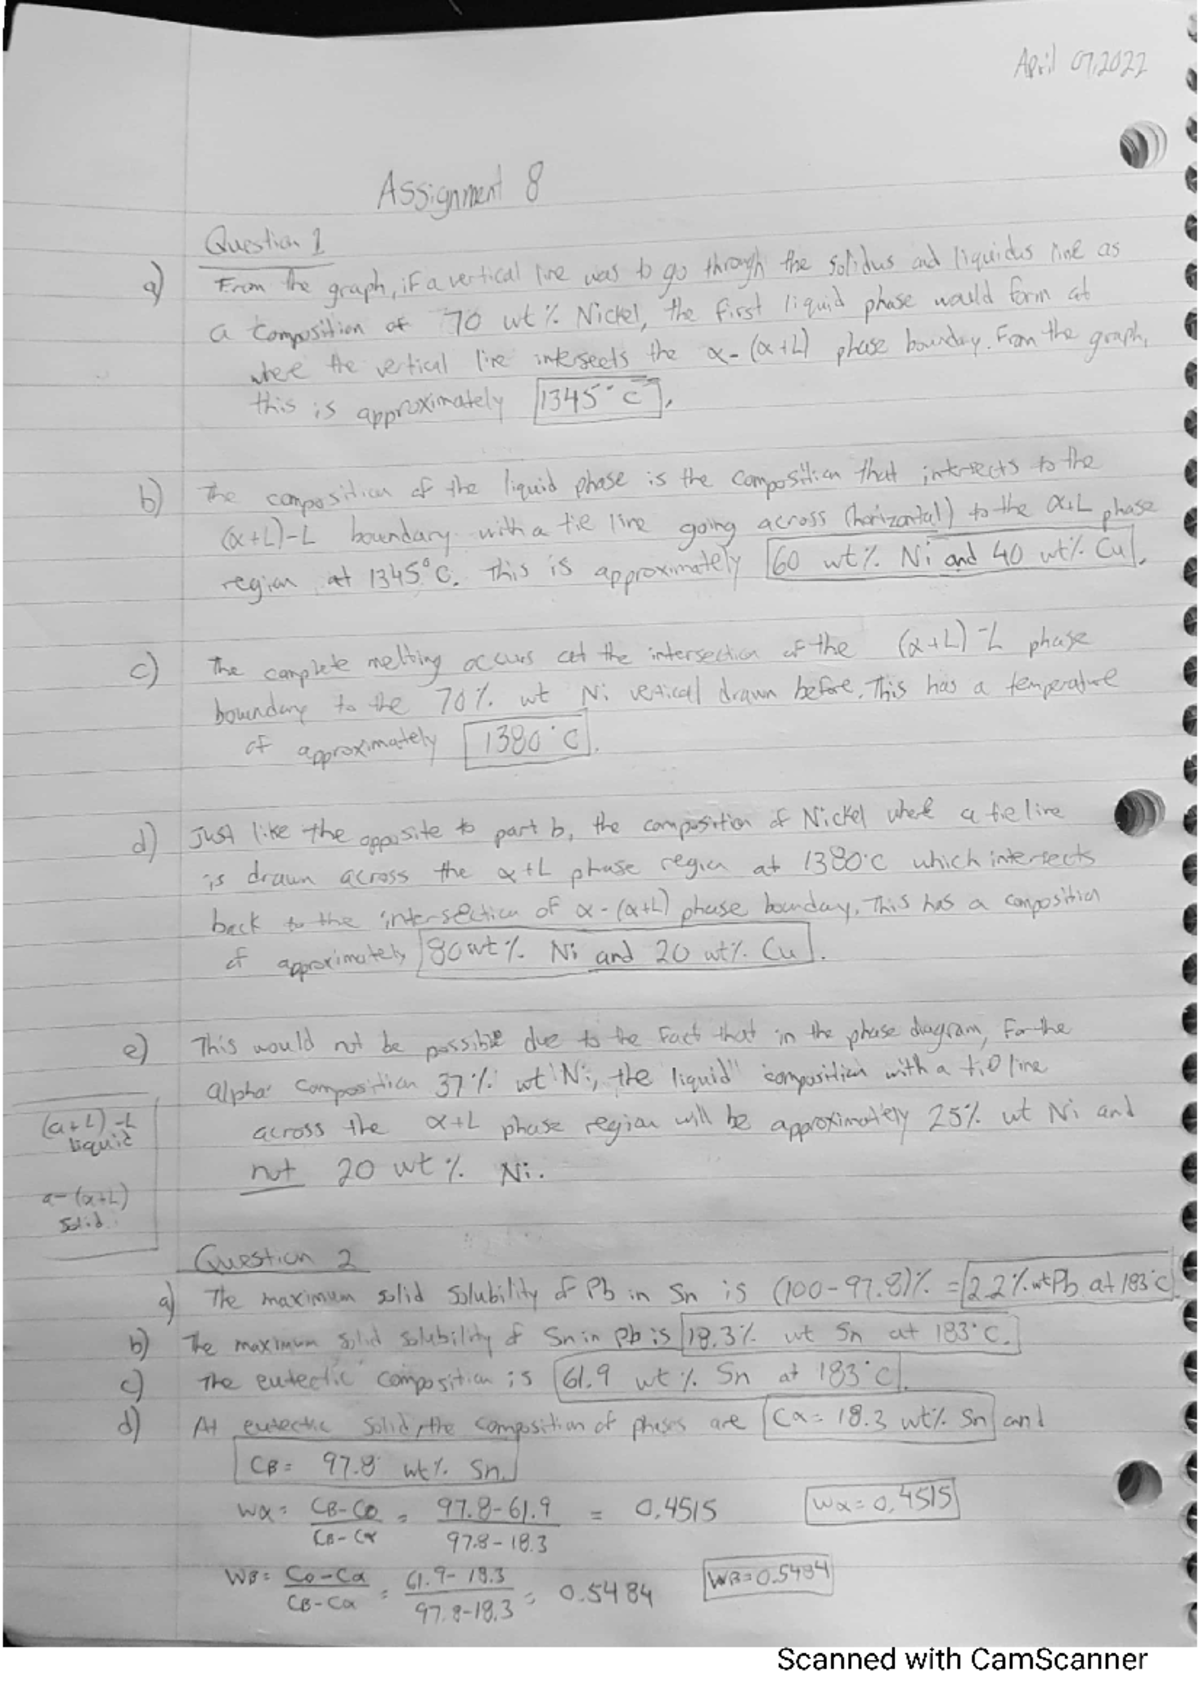 April 07, 2022
Assignment 8
Question 1
a) From the graph, if a vertical line was to go through the solidus and liquidus line as
a composition of 70 wt % Nickel, the first liquid phase would form at
where the vertical line intersects the α-(α+L) phase boundary. From the graph,
this is approximately 1345°C.
b) The composition of the liquid phase is the composition that intersects to the
(α+L)-L boundary with a tie line going across (horizontal) to the α+L phase
region at 1345°C. This is approximately 60 wt% Ni and 40 wt% Cu.
c) The complete melting occurs at the intersection of the (α+L)-L phase
boundary to the 70% wt Ni vertical drawn before. This has a temperature
of approximately 1380°C.
d) Just like the opposite to part b, the composition of Nickel where a tie line
is drawn across the α+L phase region at 1380°C which intersects
back to the intersection of α-(α+L) phase boundary. This has a composition
of approximately 80wt% Ni and 20 wt% Cu.
e) This would not be possible due to the fact that in the phase diagram, for the
alpha composition 37% wt Ni, the liquid composition with a tie line
across the α+L phase region will be approximately 25% wt Ni and
not 20 wt % Ni.
(α+L)-L
liquid
α-(α+L)
Solid
Question 2
a) The maximum solid solubility of Pb in Sn is (100-97.8)% = 2.2%wtPb at 183°C
b) The maximum solid solubility of Sn in Pb is 18.3% wt Sn at 183°C.
c) The eutectic composition is 61.9 wt% Sn at 183°C.
d) At eutectic solid, the composition of phases are Cα= 18.3 wt% Sn and
CB= 97.8 wt% Sn.
Wα= CB-C0 / CB-Cα = 97.8-61.9 / 97.8-18.3 = 0.4515 Wα=0.4515
WB= C0-Cα / CB-Cα = 61.9-18.3 / 97.8-18.3 = 0.5484 WB=0.5484
Scanned with CamScanner